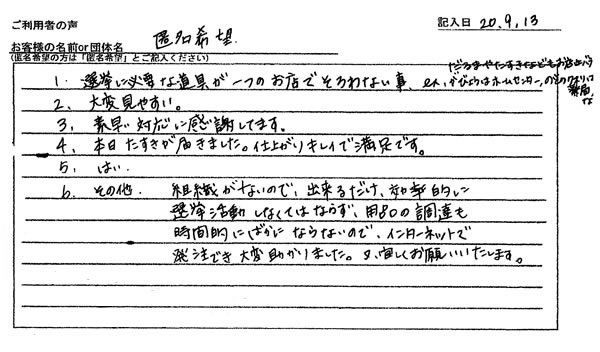 ご利用者の声
記入日 20.9.13
お客様の名前or団体名 匿名希望
(匿名希望の方は「匿名希望」とご記入ください)
だるまやたすきなどもお店
1. 選挙に必要な道具が一つのお店でそろわない事、ex. がびょうはホームセンター、
薬局、
な
2. 大変見やすい。
3. 素早い対応に感謝してます。
4. 本日たすきが届きました。仕上がりキレイで満足です。
5. はい
6. その他. 組織がないので、出来るだけ、効率的に
選挙活動しなくてはならず、用品の調達も
時間的にばかにならないので、インターネットで
発注でき大変助かりました。又、宜しくお願いいたします。